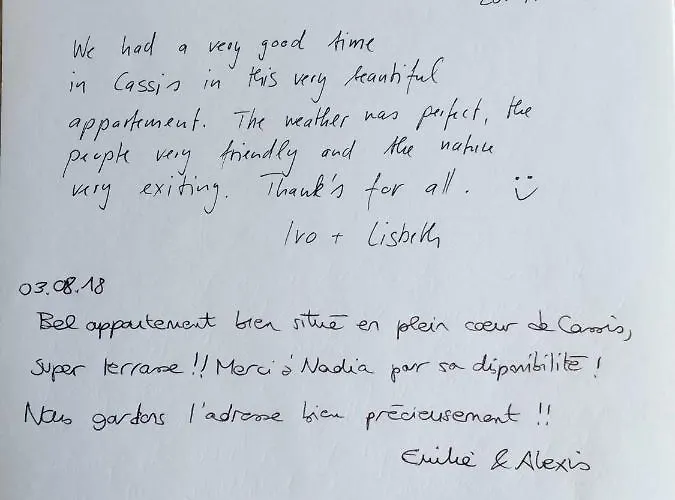 We had a very good time
in Cassis in this very beautiful
appartement. The weather was perfect, the
people very friendly and the nature
very exiting. Thank's for all. :)
Ivo + Lisbeth
03.08.18
Bel appartement bien situé en plein coeur de Cassis,
super terrasse !! Merci à Nadia pour sa disponibilité !
Nous gardons l'adresse bien précieusement !!
Emilie & Alexis